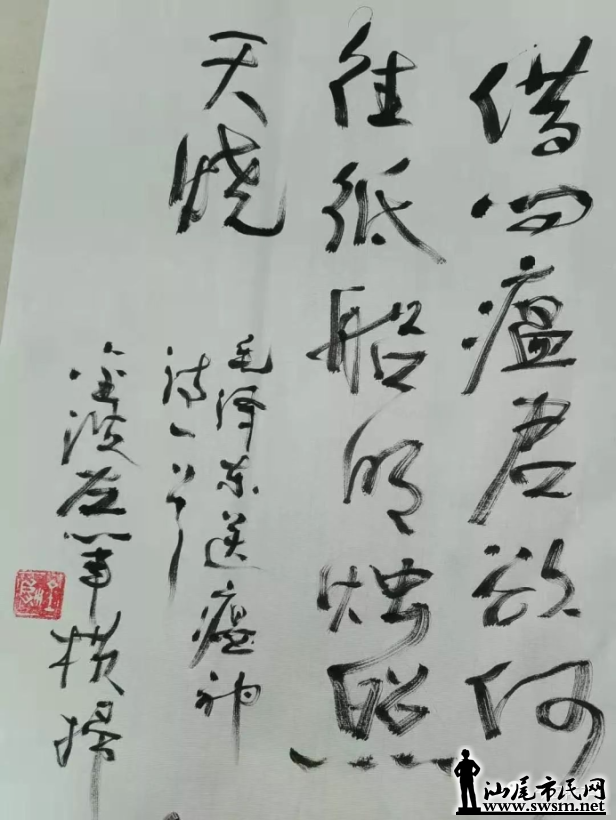 借问瘟君欲何
往纸船明烛照
天烧
毛泽东送瘟神
诗一首
金波左笔横扫
汕尾市民网
www.swsm.net